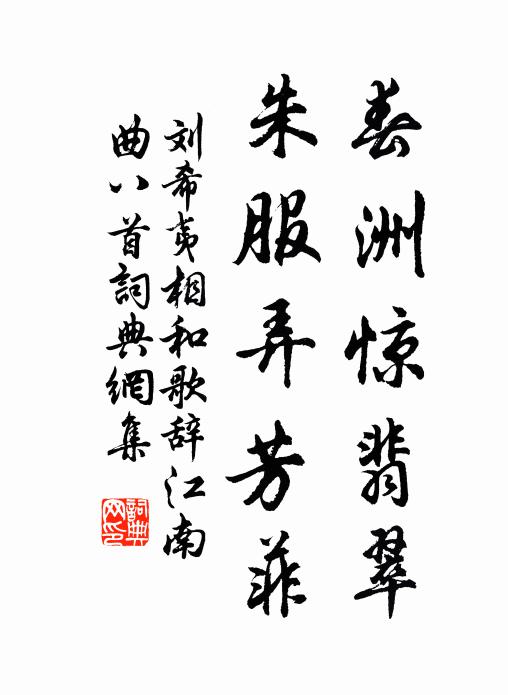 春洲惊翡翠
朱服弄芳菲
刘希夷相和歌辞江南
曲八首詞典網集
詞典网印